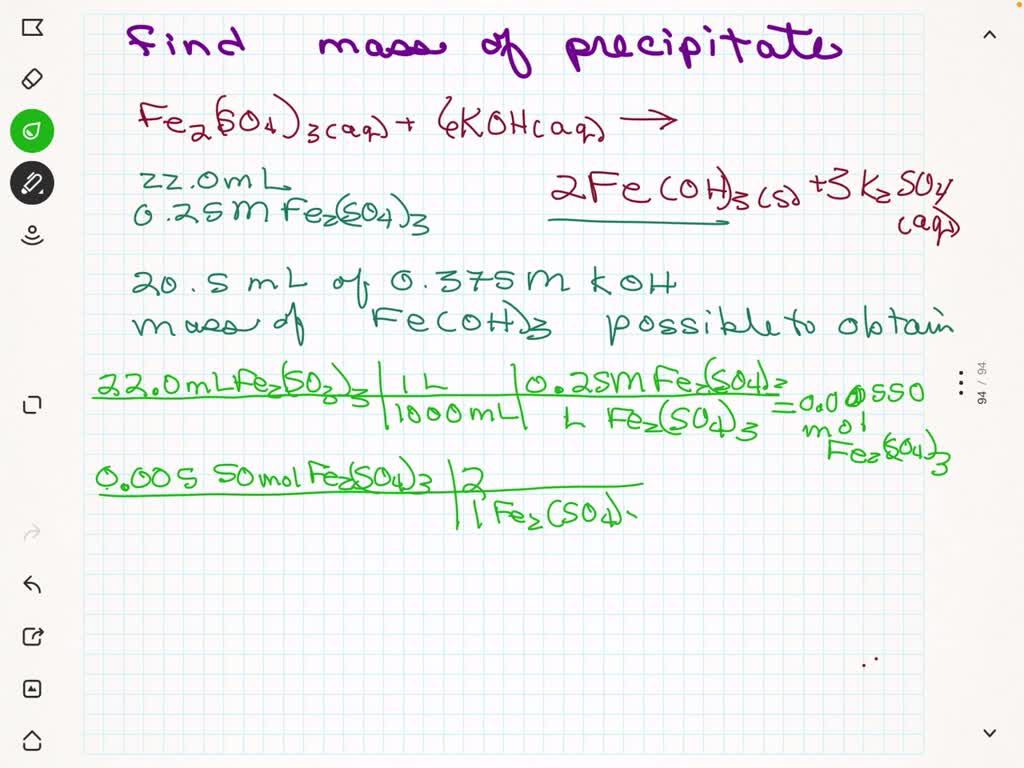 find mass of precipitate
Fe2(SO4)3(aq) + 6KOH(aq) →
2Fe(OH)3(s) + 3K2SO4
(aq)
22.0 mL
0.25M Fe2(SO4)3
20.5 mL of 0.375M KOH
mass of Fe(OH)3 possible to obtain
22.0mLFe2(SO3)3 | 1 L | 0.25M Fe2(SO4)3
1000mL | L Fe2(SO4)3
=0.00550
mol
Fe2(SO4)3
0.005 50mol Fe2(SO4)3 | 2
1 Fe2(SO4)
94 / 94